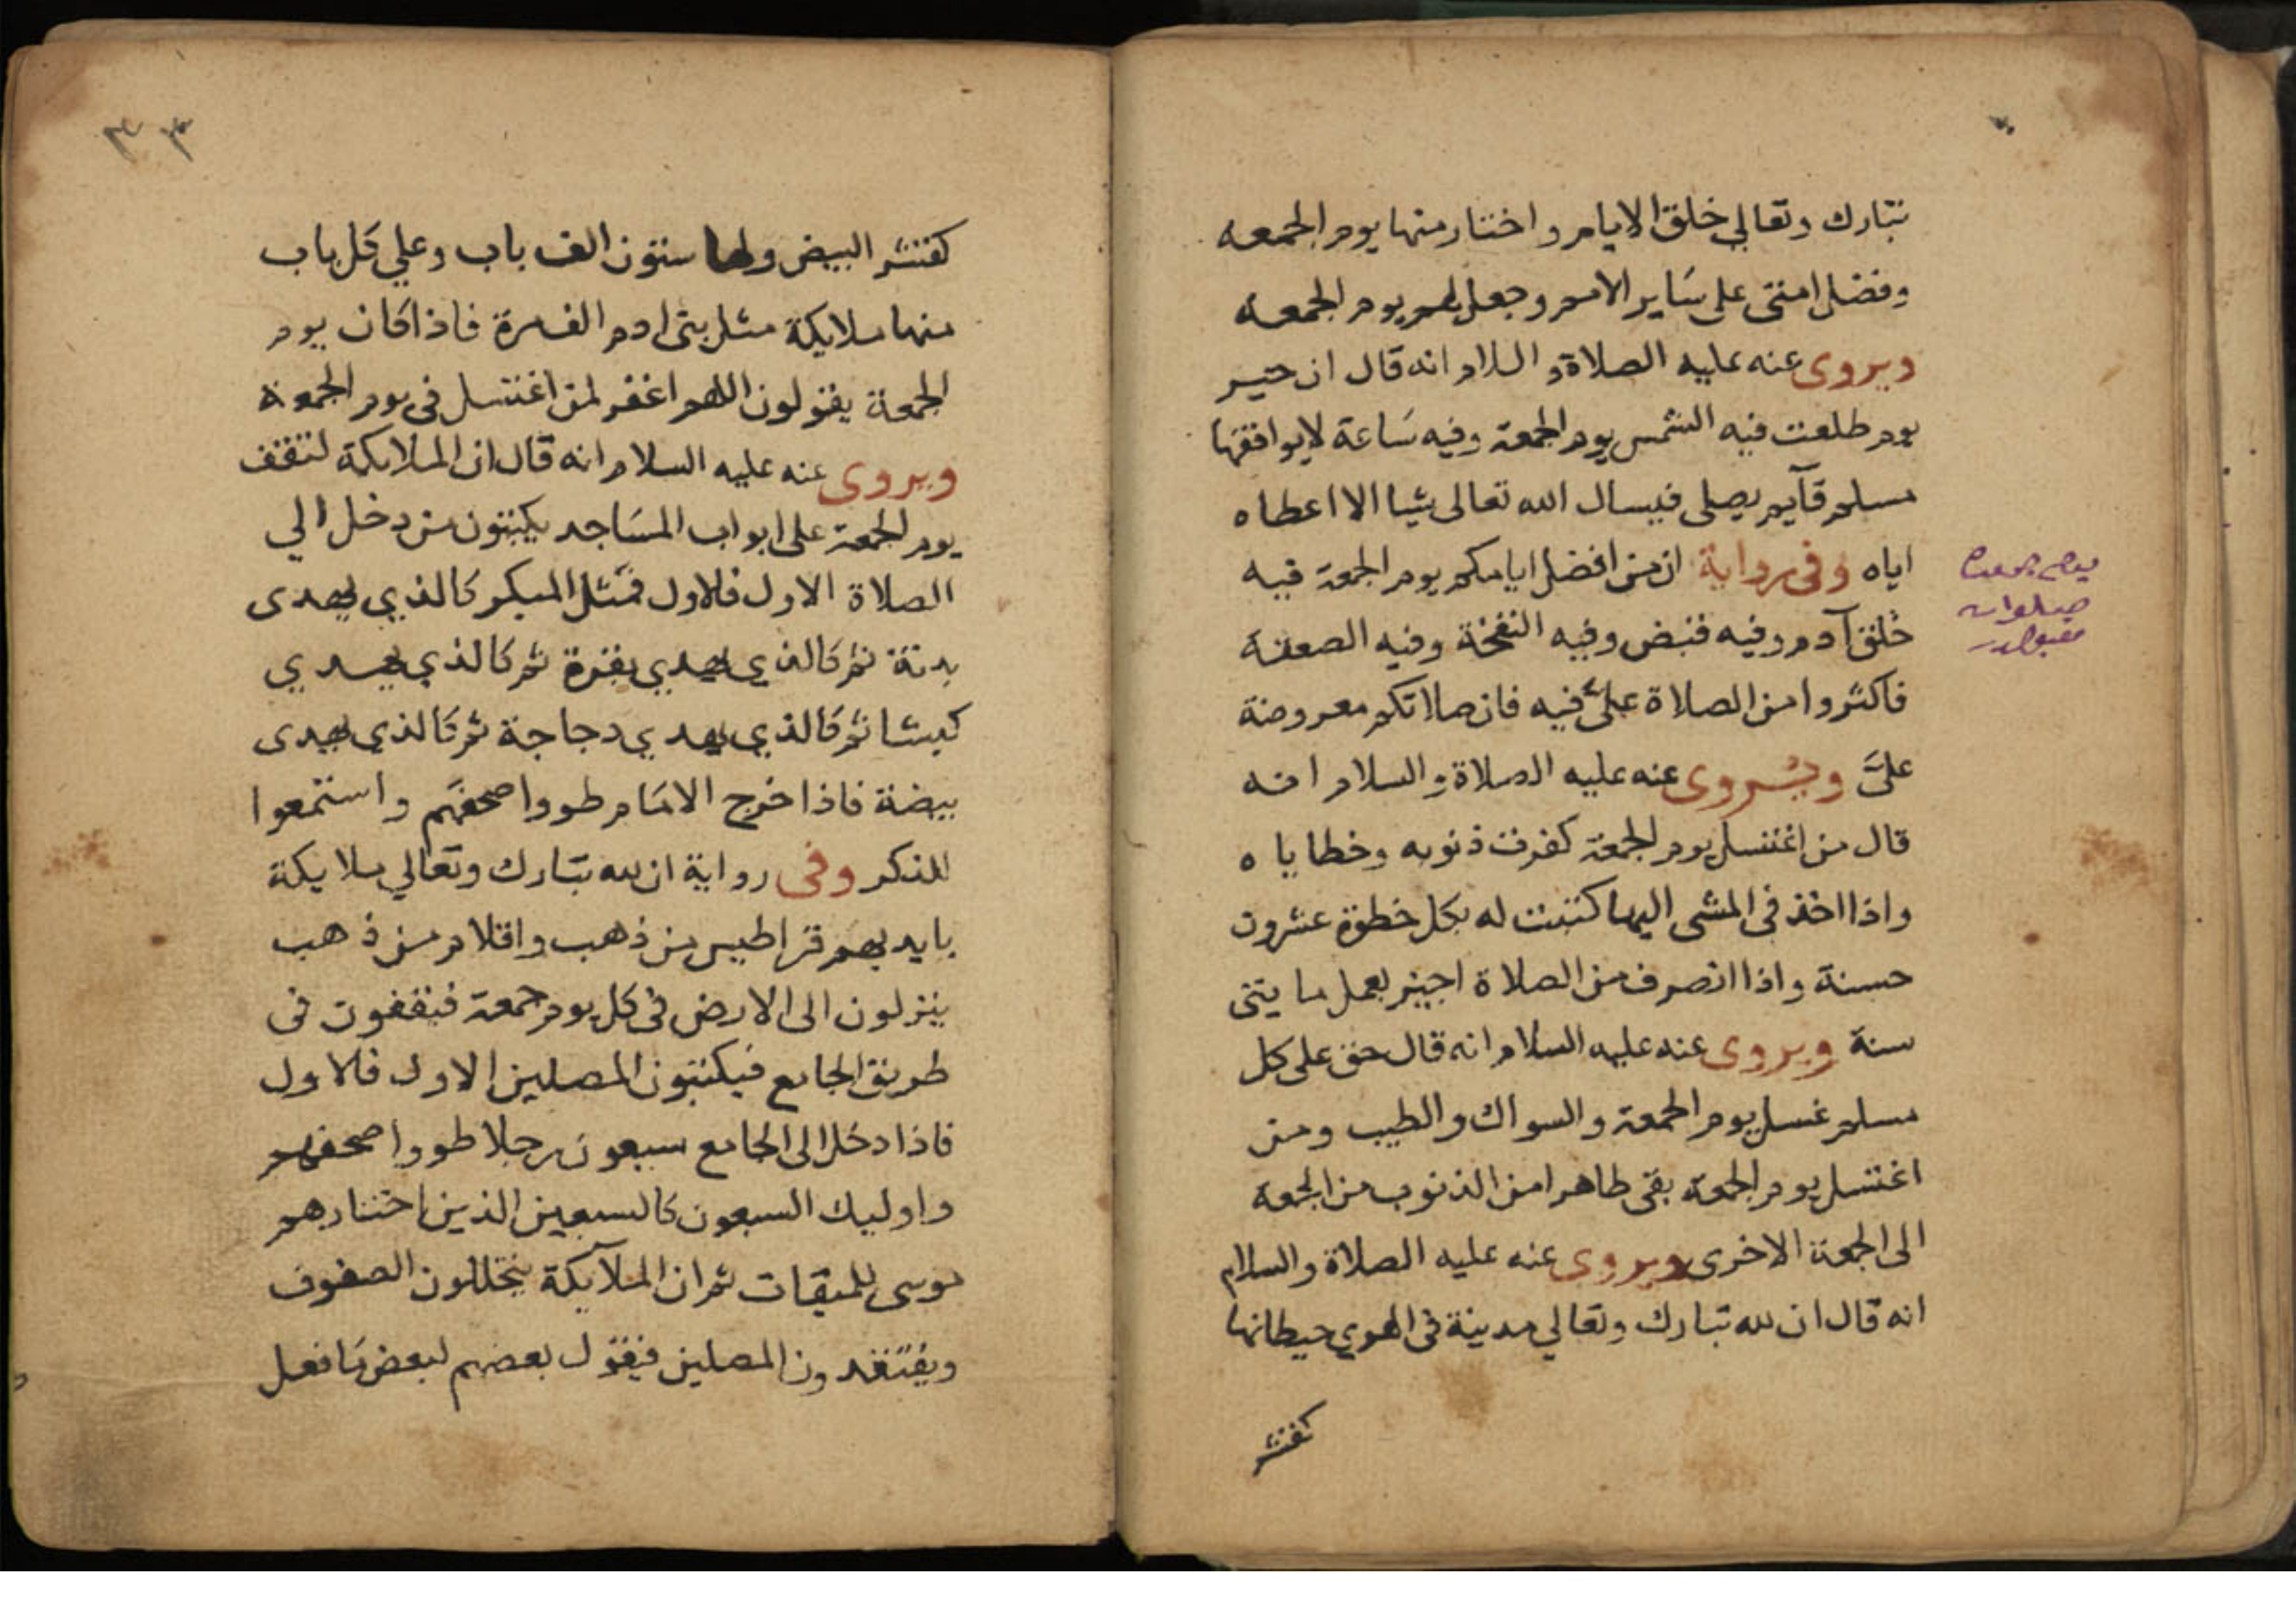 تبارك وتعالي خلق الايام واختار منها يوم الجمعه
وفضل امتى على سَاير الامم وجعل لهم يوم الجمعة
ويروى عنه عليه الصلاة والسلام انه قال ان خير
يوم طلعت فيه الشمس يوم الجمعة وفيه سَاعة لايوافقها
مسلم قآيم يصلى فيسال الله تعالى شيا الا اعطاه
اياه وفى رواية ان من افضل ايامكم يوم الجمعة فيه
خلق آدم وفيه قبض وفيه النفخة وفيه الصعقة
فاكثروا من الصلاة علىَّ فيه فان صلاتكم معروضة
علىَّ ويروى عنه عليه الصلاة والسلام انه
قال من اغتسل يوم الجمعة كفرت ذنوبه وخطاياه
واذا اخذ فى المشى اليها كتبت له بكل خطوة عشرون
حسنة واذا انصرف من الصلاة اجيز بعمل مايتى
سنة ويروى عنه عليه السلام انه قال حق على كل
مسلم غسل يوم الجمعة والسواك والطيب ومن
اغتسل يوم الجمعة بقى طاهرا من الذنوب من الجمعة
الى الجمعة الاخرى ويروى عنه عليه الصلاة والسلام
انه قال ان لله تبارك وتعالي مدينة فى الهوي حيطانها
كقشر
يوم جمعه
صلوات
كقشر البيض ولها ستون الف باب وعلي كل باب
منها ملايكة مثل بنى ادم الف مرة فاذا كان يوم
الجمعة يقولون اللهم اغفر لمن اغتسل فى يوم الجمعة
ويروى عنه عليه السلام انه قال ان الملايكة لتقف
يوم الجمعة على ابواب المسَاجد يكتبون من دخل الي
الصلاة الاول فالاول فمثل المبكر كالذي يهدى
بدنة ثم كالذي يهدي بقرة ثم كالذي يهدي
كبشا ثم كالذي يهدي دجاجة ثم كالذي يهدى
بيضة فاذا خرج الامَام طووا صحفهم واستمعوا
للذكر وفى رواية ان لله تبارك وتعالي ملايكة
بايديهم قراطيس من ذهب واقلام من ذهب
ينزلون الى الارض فى كل يوم جمعة فيقفون فى
طريق الجامع فيكتبون المصلين الاول فالاول
فاذا دخل الى الجامع سبعون رجلا طووا صحفهم
واوليك السبعون كالسبعين الذين اختارهم
موسى للميقات ثم ان الملآيكة يتخللون الصفوف
ويفتقدون المصلين فيقول بعضهم لبعض مَا فعل